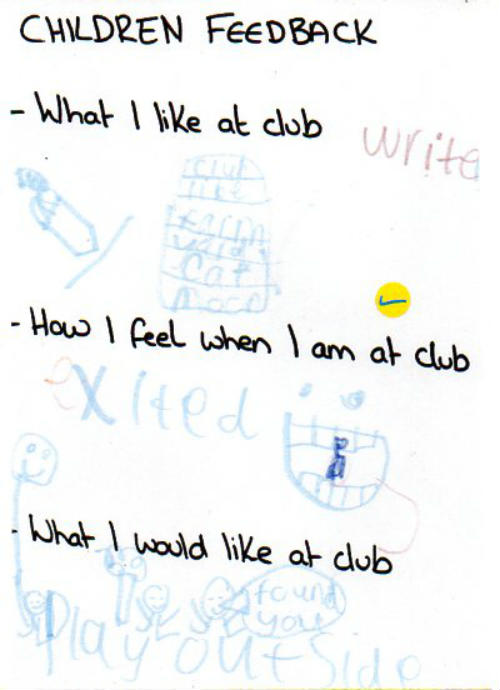 CHILDREN FEEDBACK
- What I like at club
write
club
like
Cat
- How I feel when I am at club
exited
- What I would like at club
found
you
Play outside